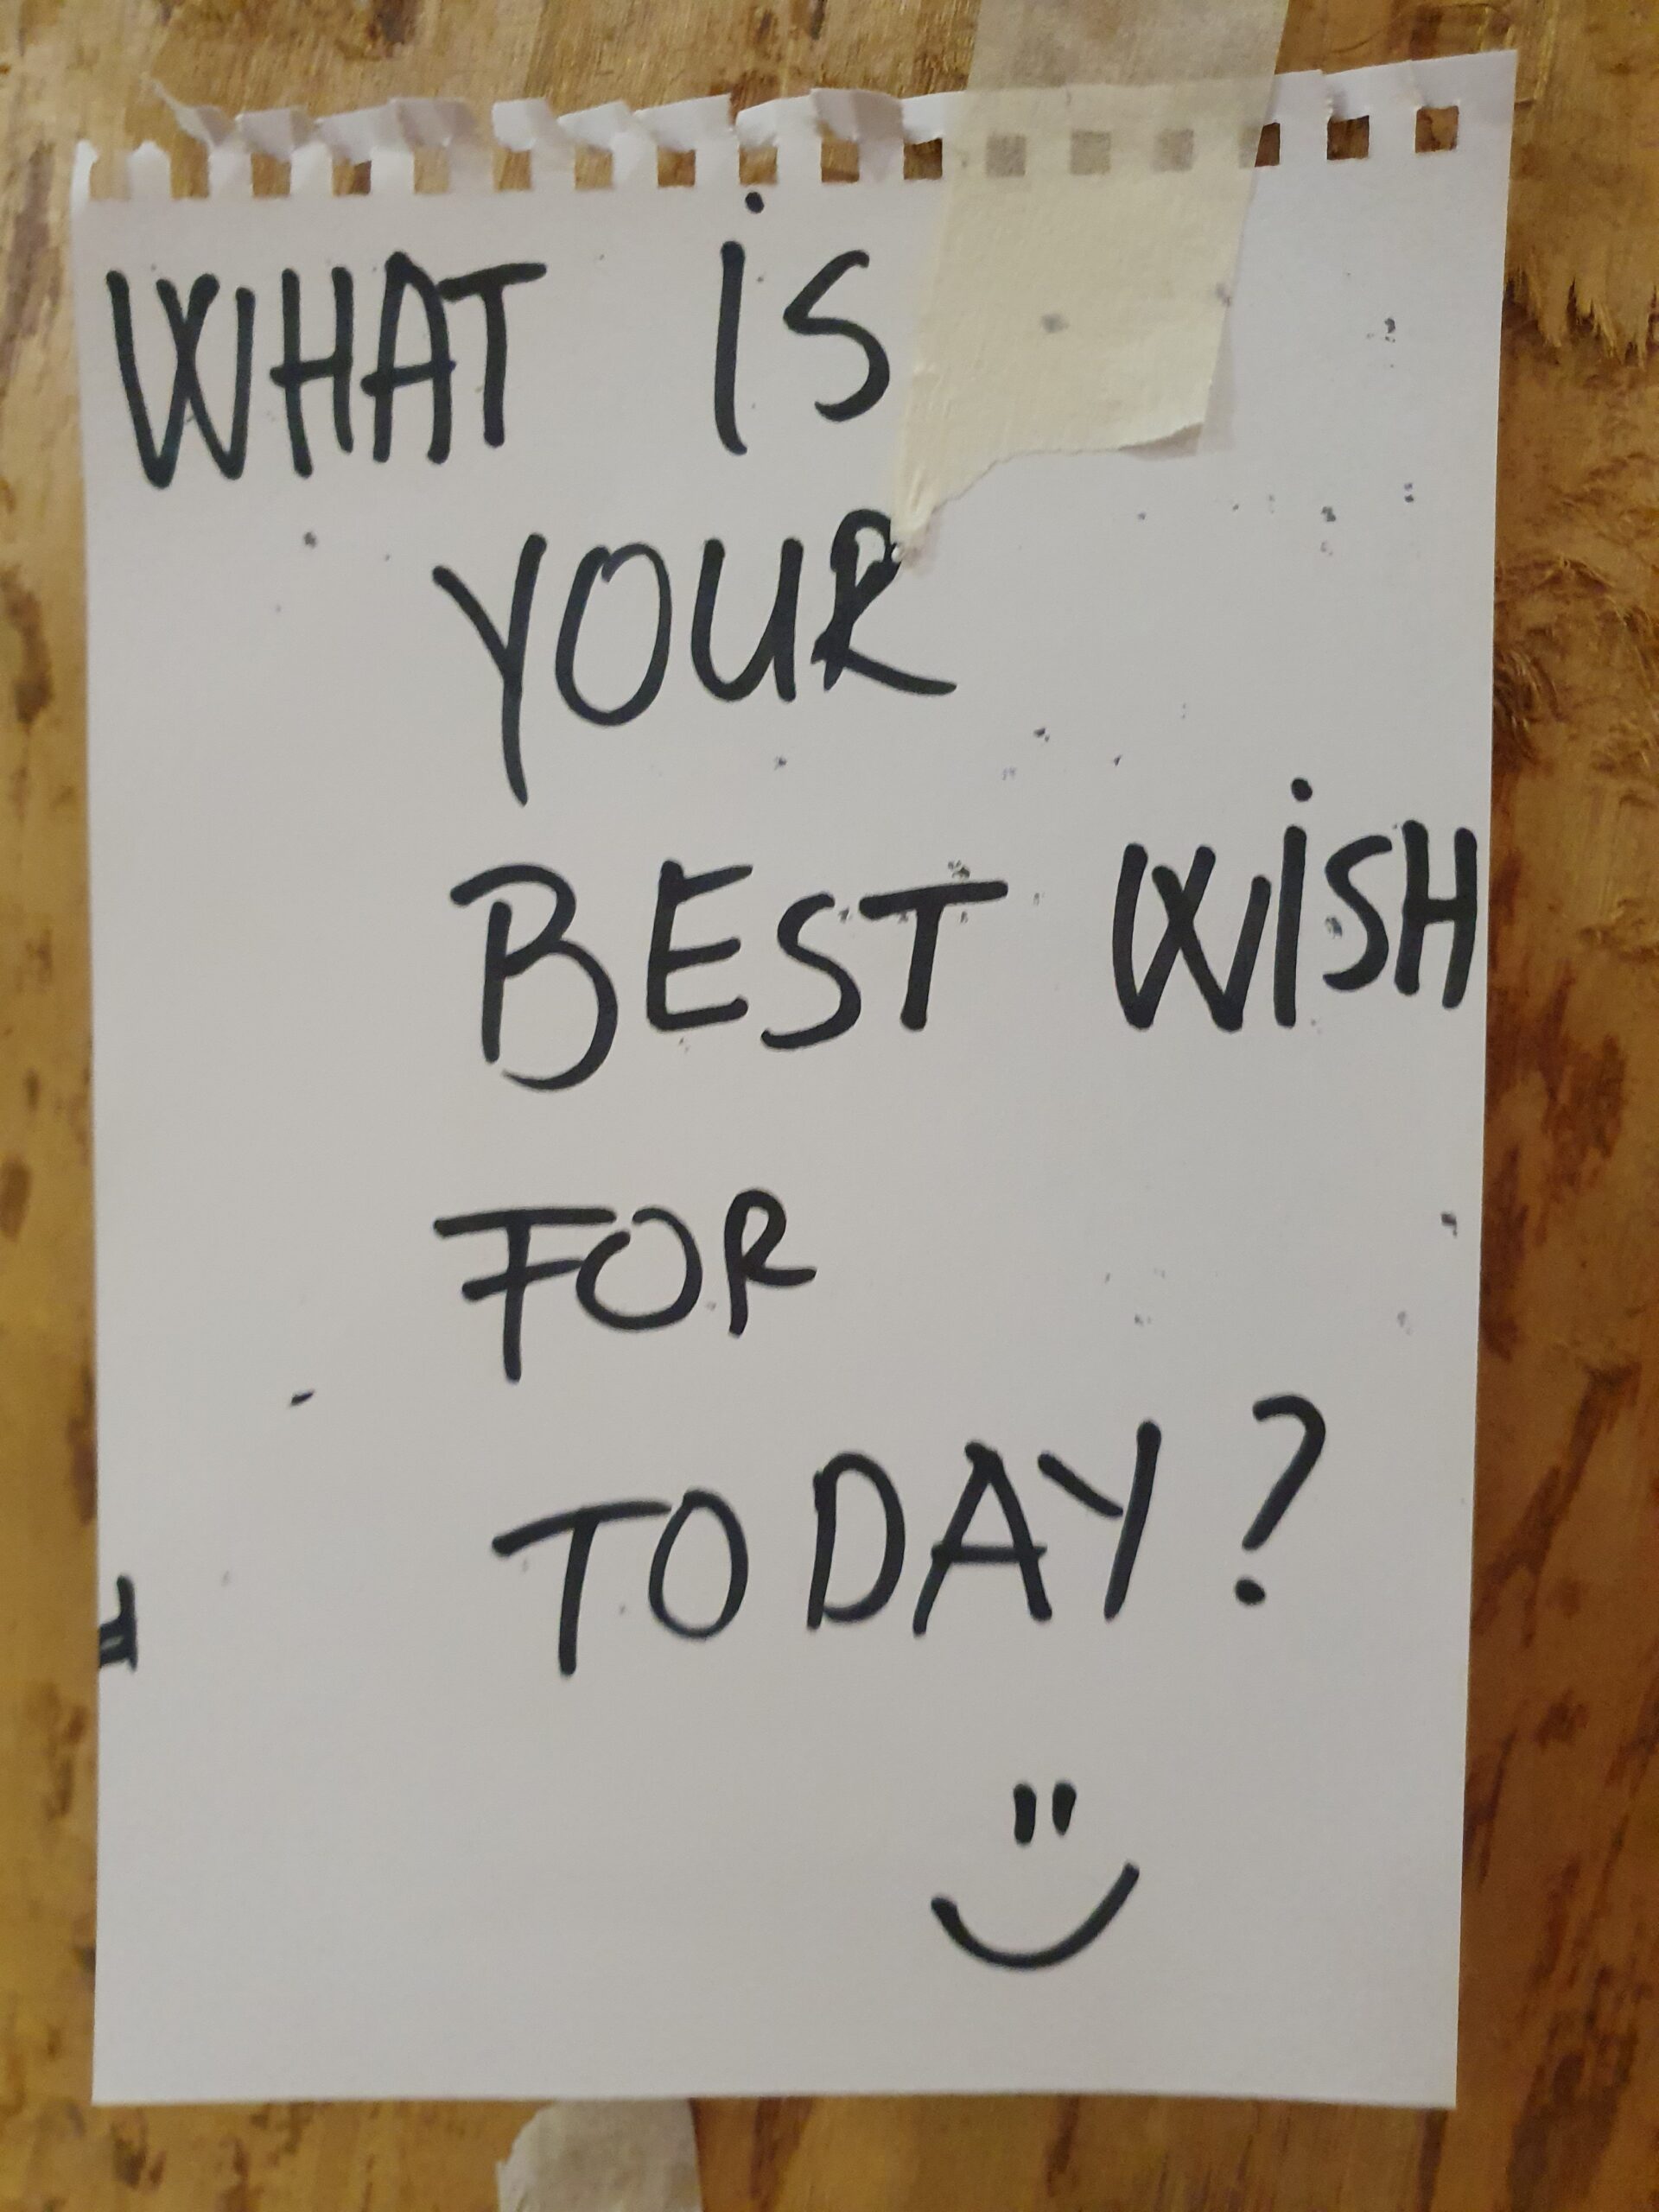 WHAT iS
YOUR
BEST WiSH
FOR
TODAY?